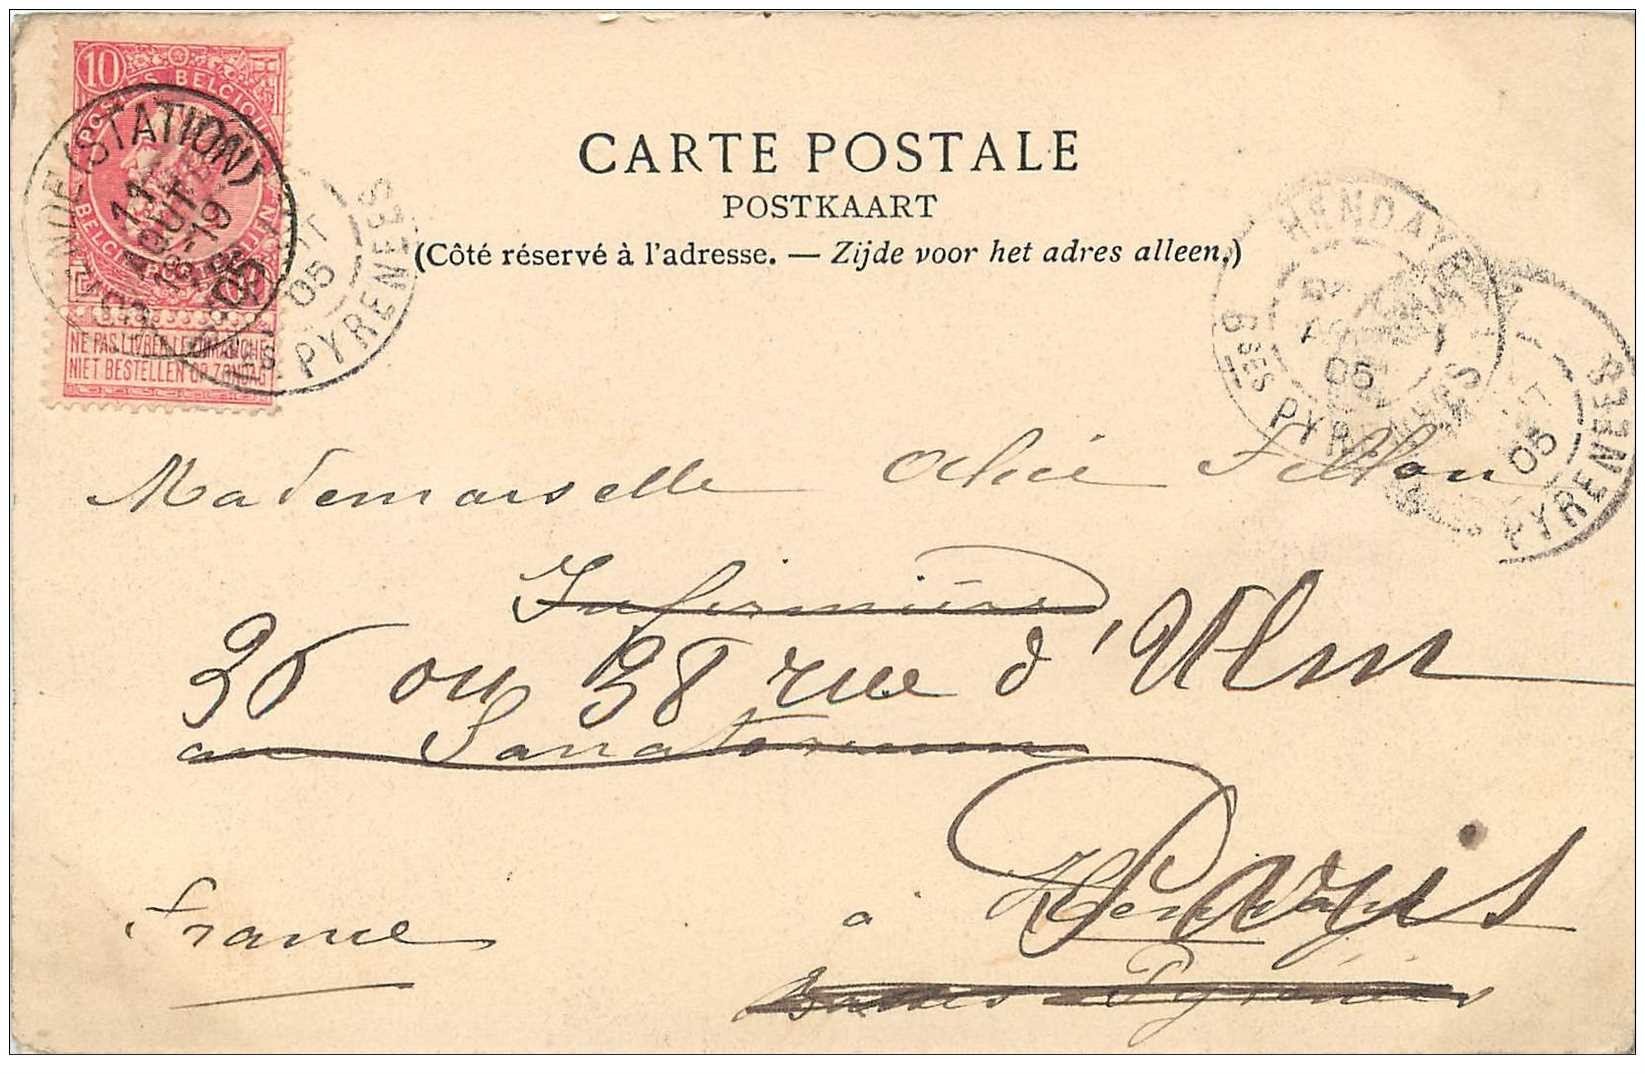 10
POSTES BELGIQUE
NE PAS LIVRER LE DIMANCHE
NIET BESTELLEN OP ZONDAG
(STATION)
11
AOUT
18-19
05
05
PYRENEES
CARTE POSTALE
POSTKAART
(Côté réservé à l'adresse. — Zijde voor het adres alleen.)
HENDAYE
05
BSES PYRENEES
05
PYRENEES
Mademoiselle Fillon
Infirmière
36 ou 38 rue d'Ulm
au Sanatorium
à Hendaye
Paris
France
Basses Pyrénées